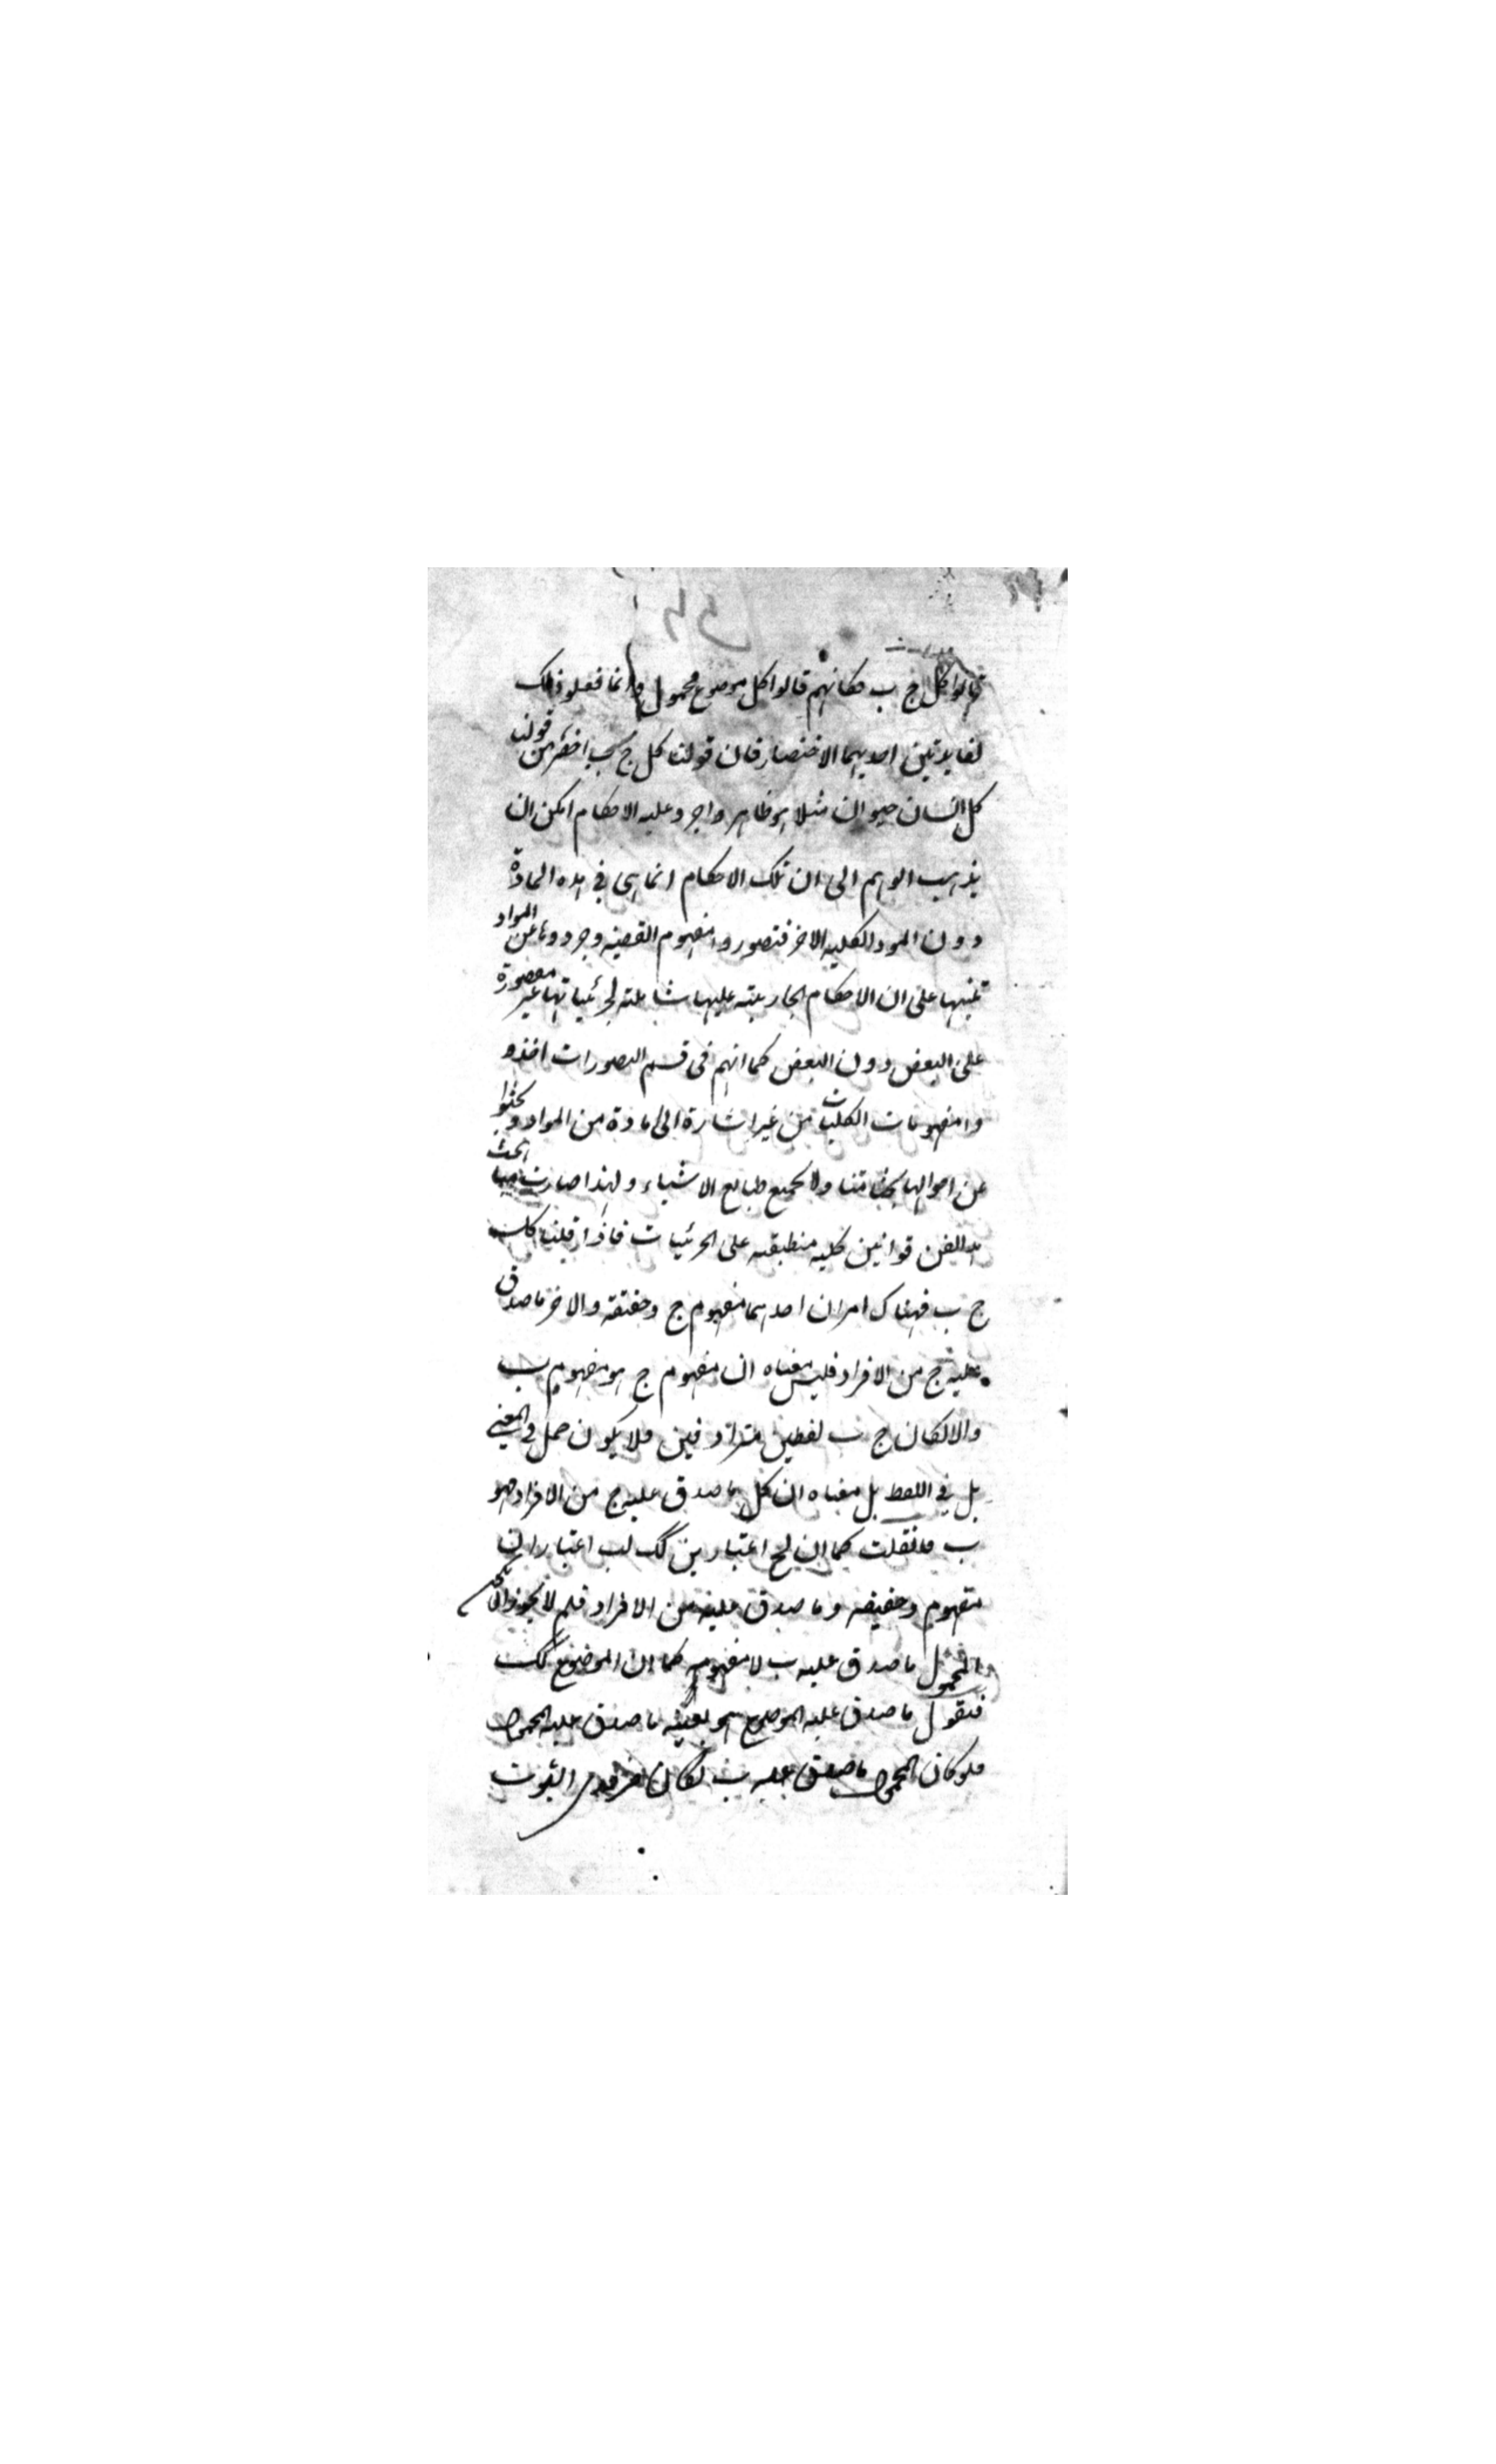 قالوا كل ج ب فكانهم قالوا كل موضوع محمول وانما فعلو ذلك
لفايدتين احديهما الاختصار فان قولنا كل ج ب اخصر من قولنا
كل انسان حيوان مثلا هو ظاهر واجر وعليه الاحكام امكن ان
يذهب الوهم الى ان تلك الاحكام انما هى في هذه المادة
دون المود الكليه الاخر فتصور وا مفهوم القضيه وجردوها عن المواد
تنبيها على ان الاحكام الجاريته عليها شاملته لجزئياتها غير مقصورة
على البعض دون البعض كما انهم فى قسم التصورات اخذو
وا مفهومات الكليات من غير اشارة الى مادة من المواد وبحثوا
عن احوالها بحثا متنا ولا لجميع طبايع الاشياء ولهذا صارت مباحث
هذ الفن قوانين كليه منطبقه على الجزئيات فاذا قلنا كل
ج ب فهناك امران احدهما مفهوم ج وحقيقة والاخر ما صدق
عليه ج من الافراد فليس معناه ان مفهوم ج هو مفهوم ب
والا لكان ج ب لفظين مترادفين فلا يكون حمل في المعنى
بل في اللفظ بل معناه ان كل ما صدق عليه ج من الافراد فهو
ب فانقلت كما ان لج اعتبارين كك لب اعتباران
مفهوم وحقيقه وما صدق عليه من الافراد فلم لا يجوز ان يكون
المحمول ما صدق عليه ب لا مفهومه كما ان الموضوع كك
فنقول ما صدق عليه الموضوع هو بعينه ما صدق عليه المحمول
فلو كان المحمول ما صدق عليه ب لكان ضرورى الثبوت